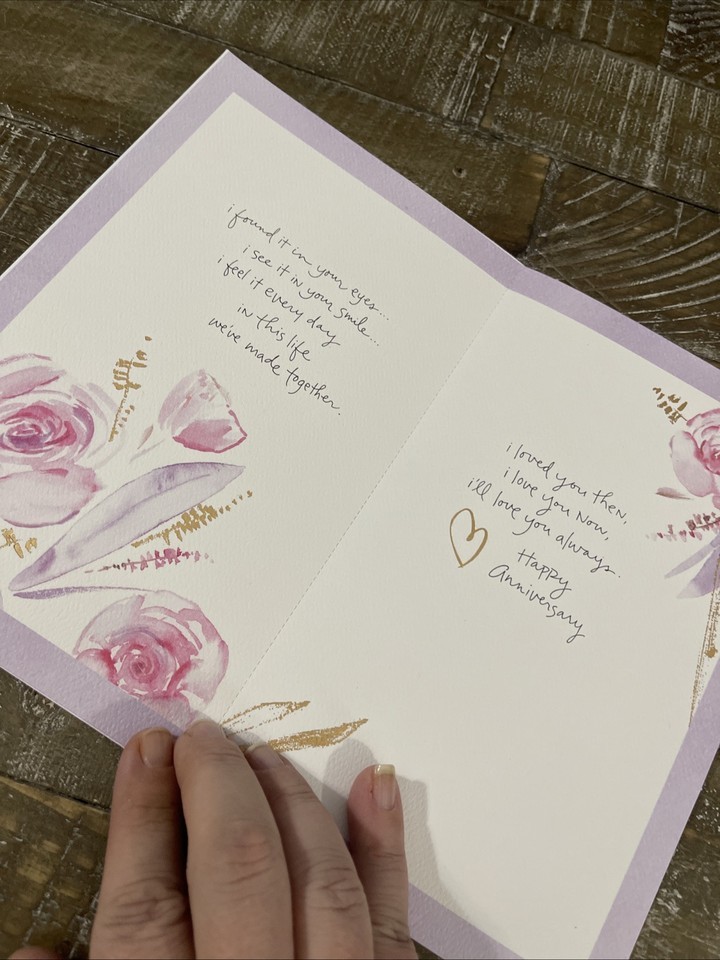 i found it in your eyes...
i see it in your smile...
i feel it every day
in this life
we've made together.
i loved you then,
i love you now,
i'll love you always.
Happy
Anniversary